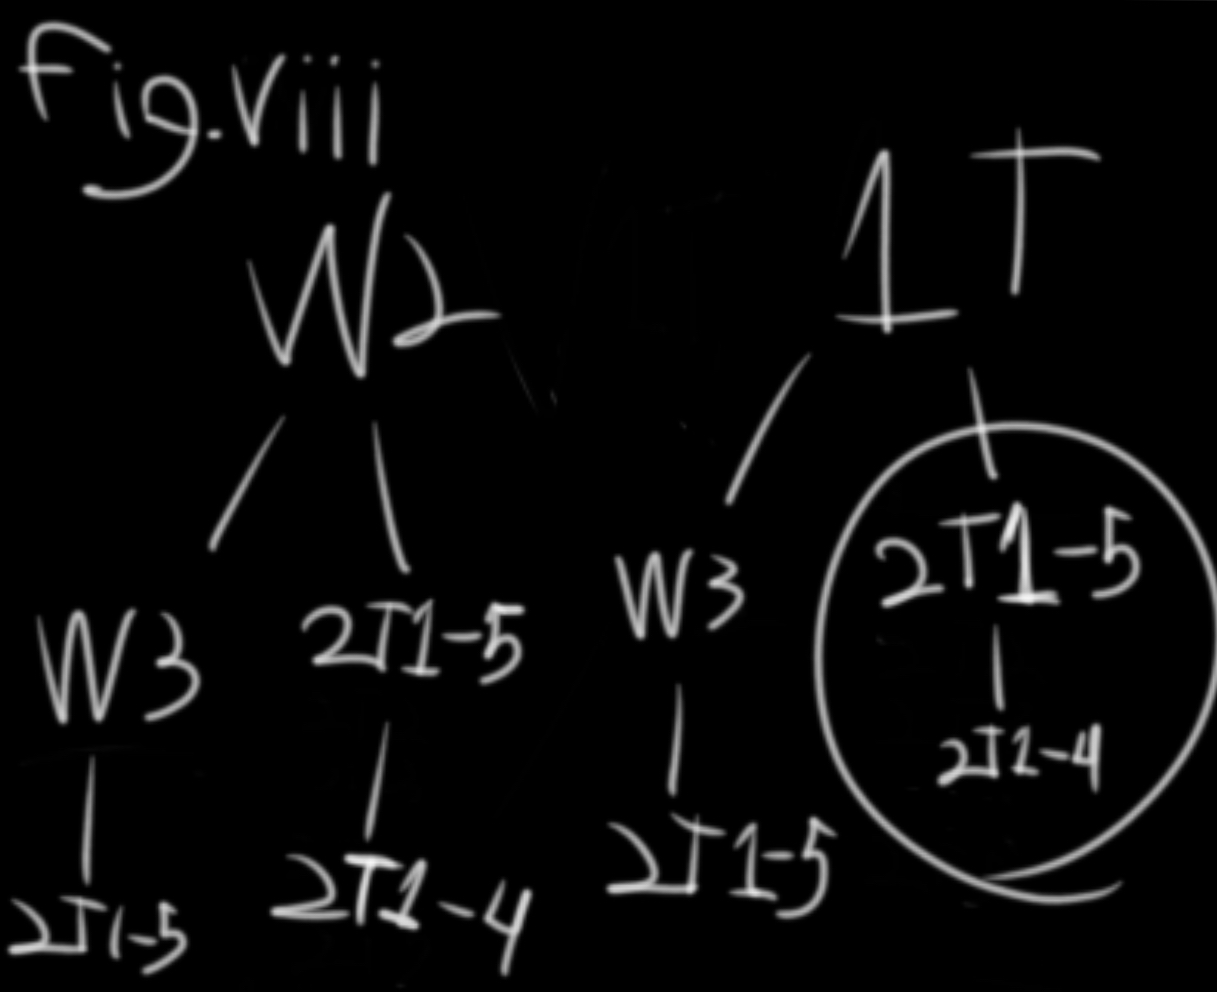 Fig. Viii
W2 1T
W3 2T1-5 W3 2T1-5
2T1-5 2T1-4 2T1-5 2T1-4